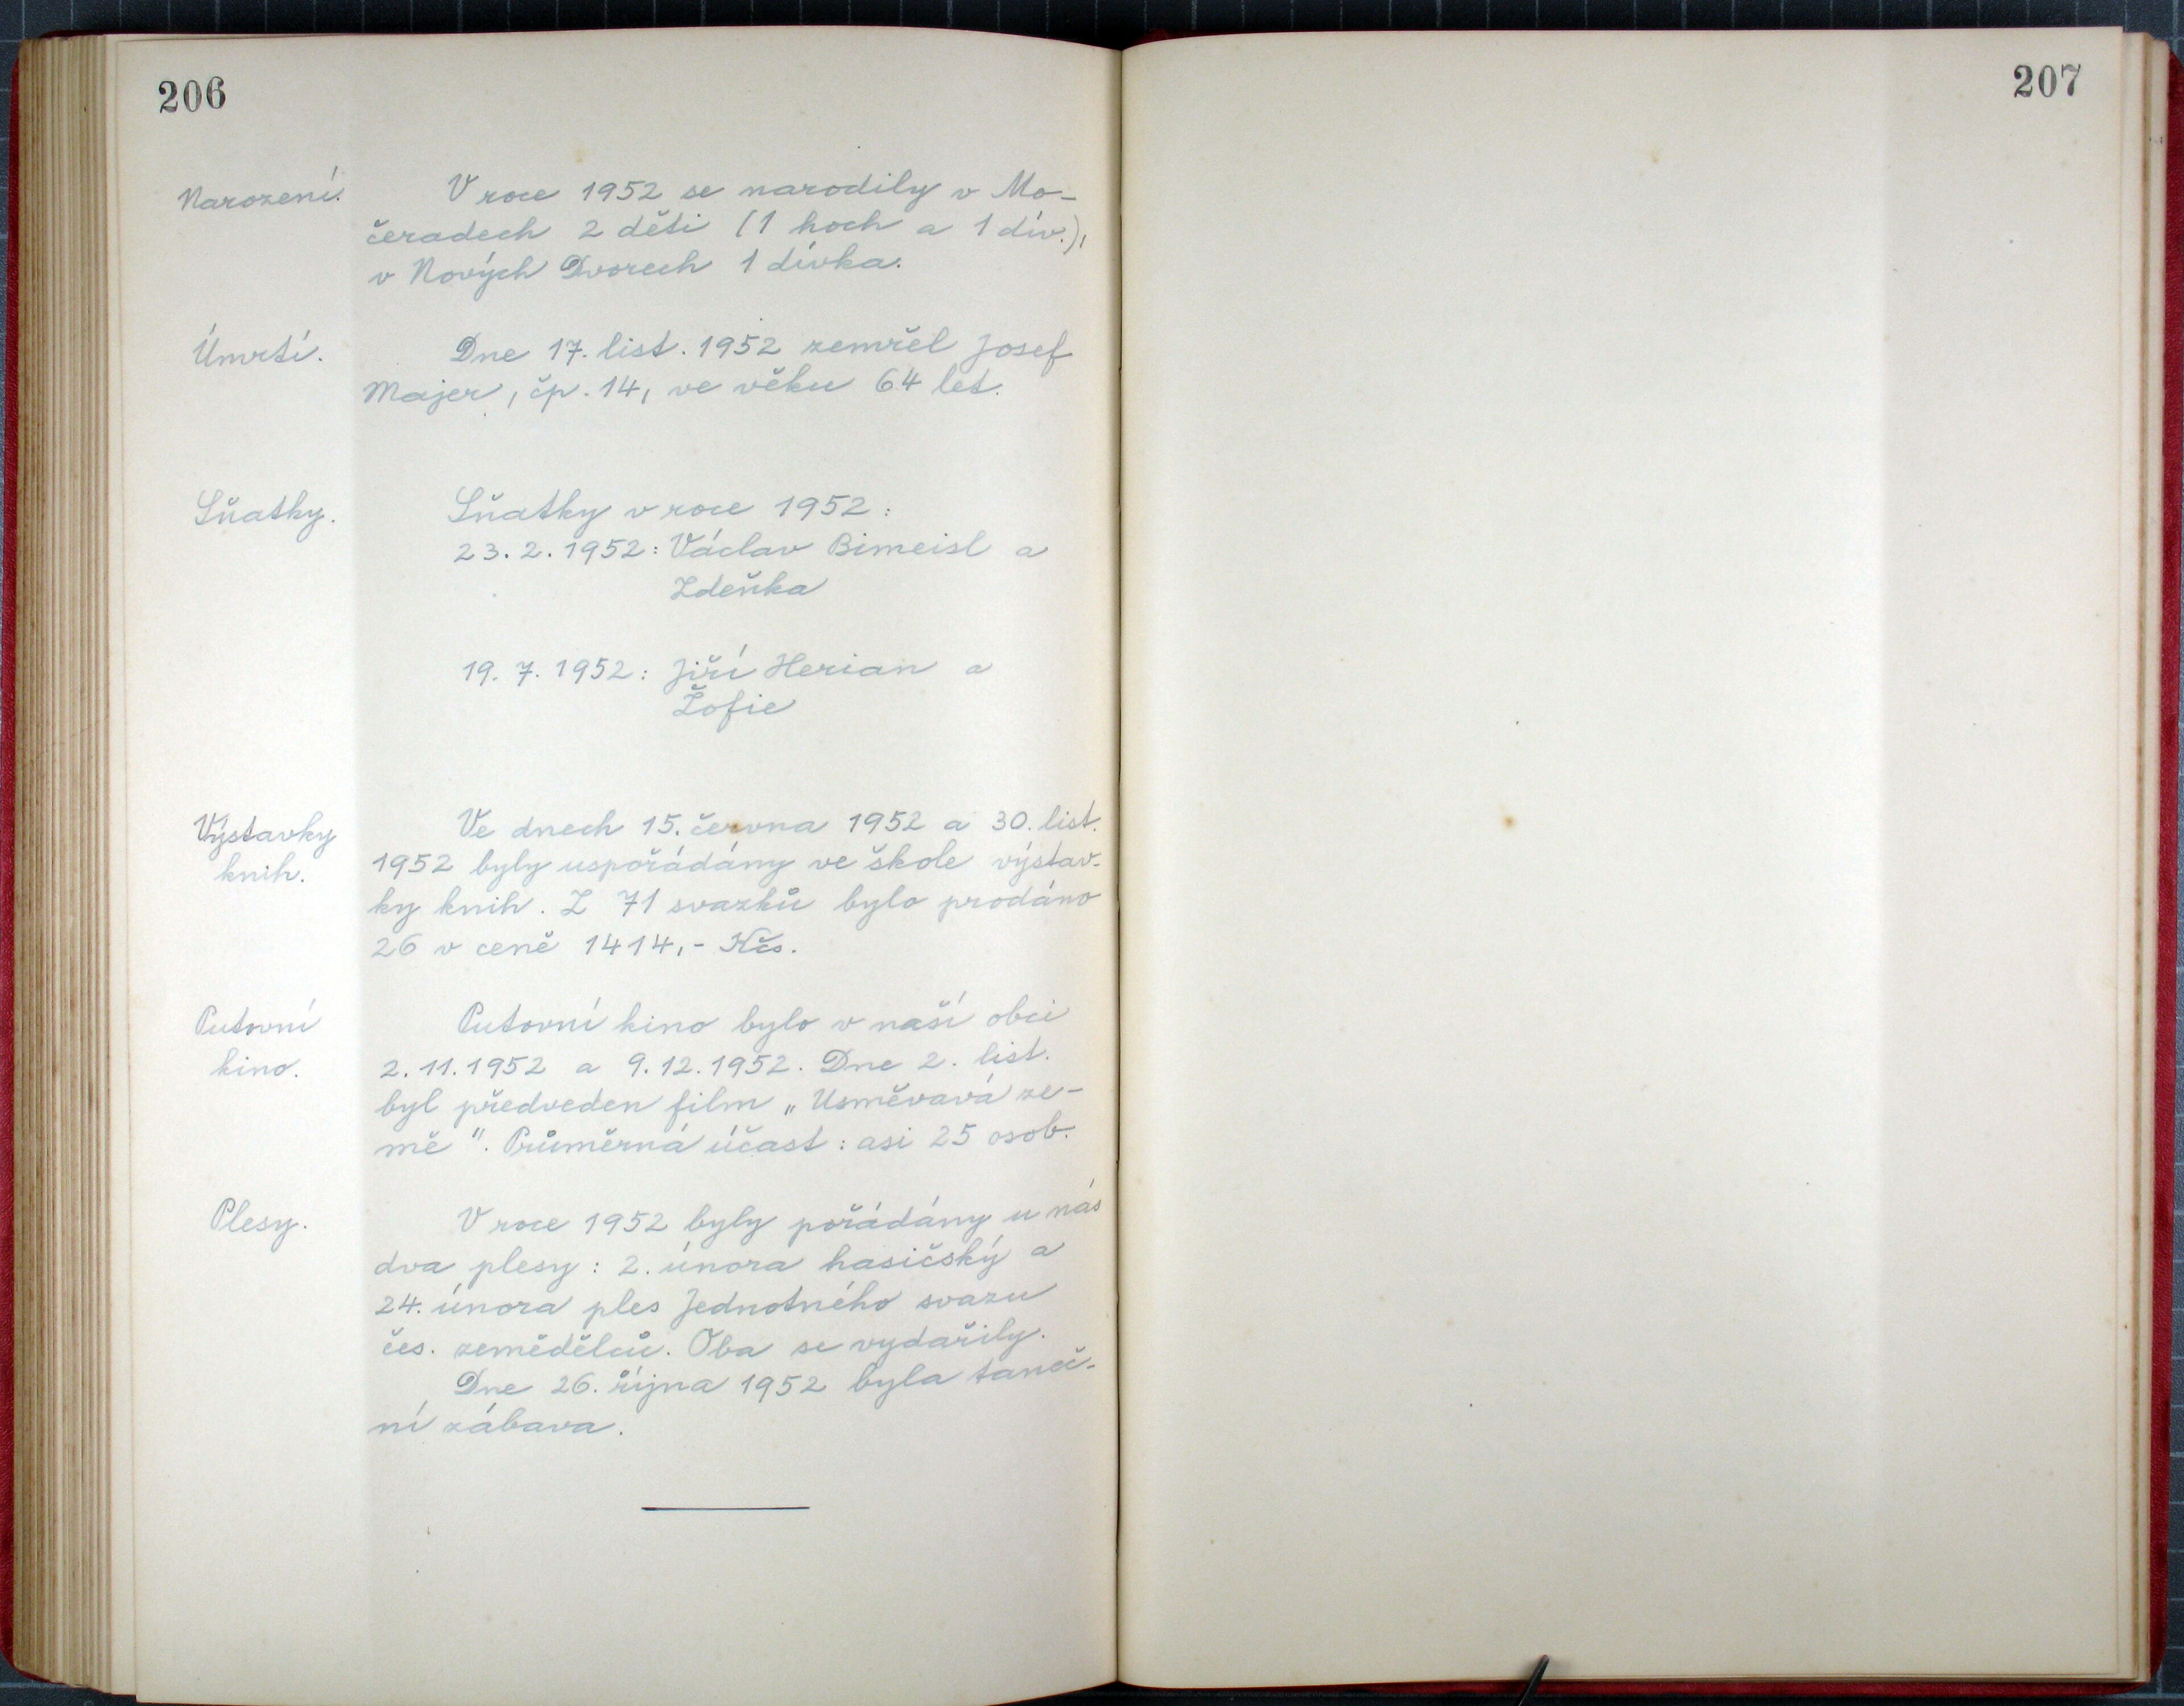 206
Narození.
V roce 1952 se narodily v Mo-
čeradech 2 děti (1 hoch a 1 dív.),
v Nových Dvorech 1 dívka.
Úmrtí.
Dne 17. list. 1952 zemřel Josef
Majer, čp. 14, ve věku 64 let.
Sňatky.
Sňatky v roce 1952:
23. 2. 1952: Václav Bimeisl a
Zdeňka
19. 7. 1952: Jiří Herian a
Žofie
Výstavky
knih.
Ve dnech 15. června 1952 a 30. list.
1952 byly uspořádány ve škole výstav-
ky knih. Z 71 svazků bylo prodáno
26 v ceně 1414,- Kčs.
Putovní
kino.
Putovní kino bylo v naší obci
2. 11. 1952 a 9. 12. 1952. Dne 2. list.
byl předveden film „Usměvavá ze-
mě". Průměrná účast: asi 25 osob.
Plesy.
V roce 1952 byly pořádány u nás
dva plesy: 2. února hasičský a
24. února ples Jednotného svazu
čes. zemědělců. Oba se vydařily.
Dne 26. října 1952 byla taneč-
ní zábava.
207